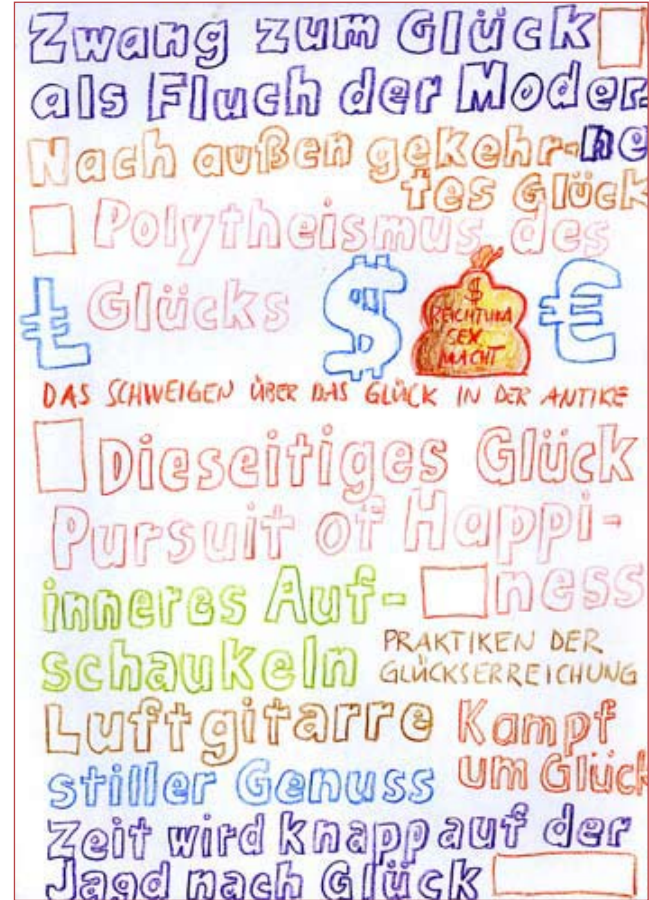 Zwang zum Glück
als Fluch der Moder-
Nach außen gekehr-ne
tes Glück
Polytheismus des
Glücks
$ $ €
REICHTUM
SEX
MACHT
DAS SCHWEIGEN ÜBER DAS GLÜCK IN DER ANTIKE
Dieseitiges Glück
Pursuit of Happi-
inneres Auf- ness
schaukeln
PRAKTIKEN DER
GLÜCKSERREICHUNG
Luftgitarre
Kampf
um Glück
stiller Genuss
Zeit wird knapp auf der
Jagd nach Glück